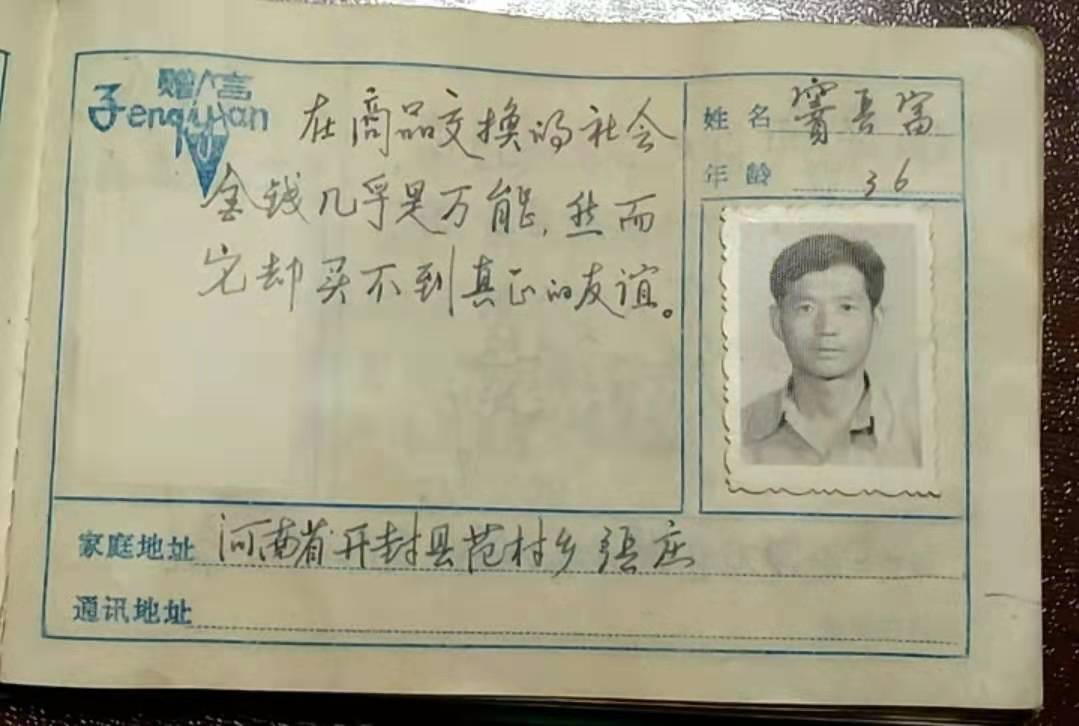 赠言
Zengyan
在商品交换的社会
金钱几乎是万能,然而
它却买不到真正的友谊。
姓名 窦吾富
年龄 36
家庭地址 河南省开封县范村乡张庄
通讯地址